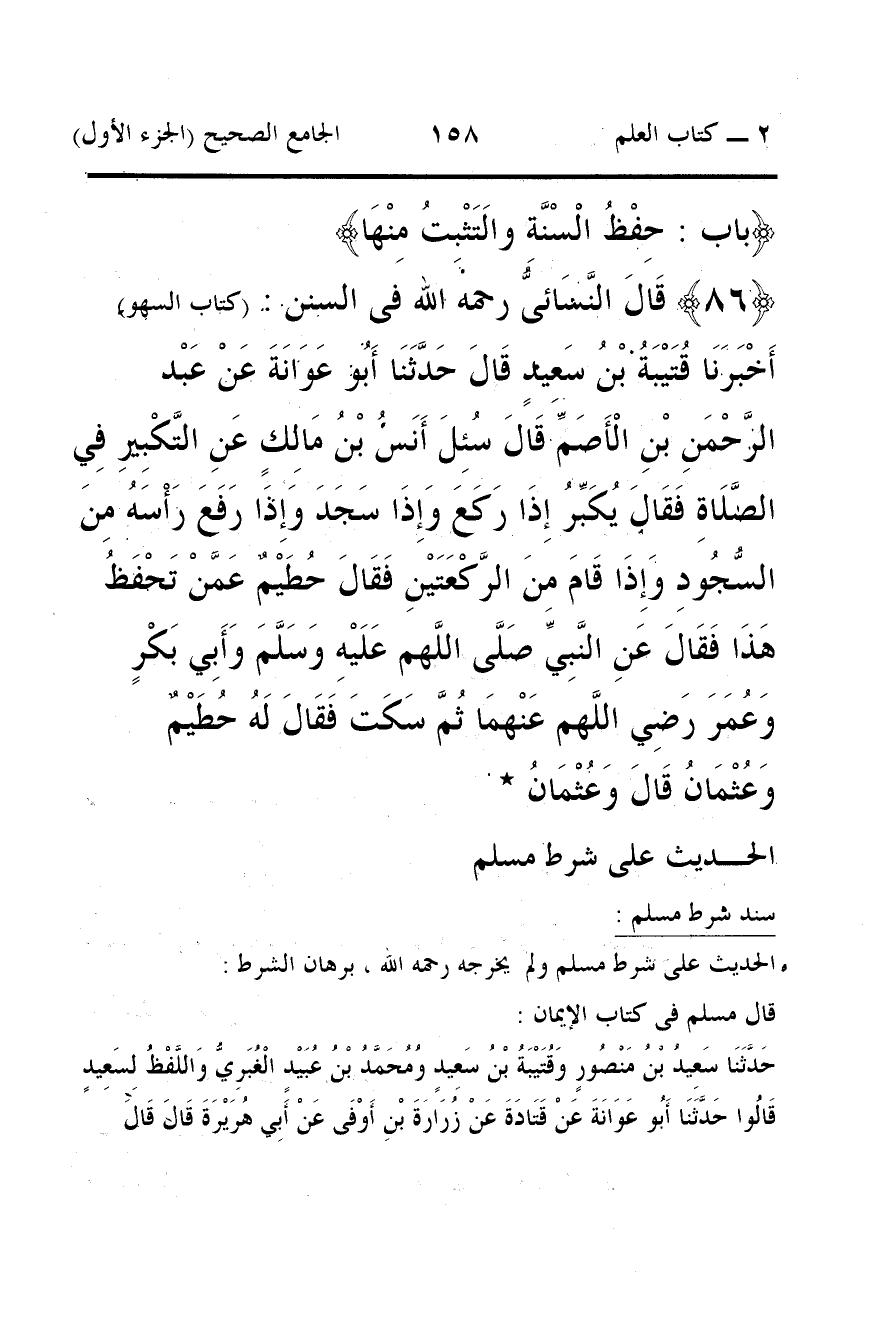 ٢ ـ كتاب العلم ١٥٨ الجامع الصحيح (الجزء الأول)
﴿باب : حِفْظُ الْسنَّةِ والَتَثْبِتُ مِنْهَا﴾
﴿٨٦﴾ قَالَ النَّسَائىُّ رحمهُ الله فى السنن : (كتاب السهو)
أَخْبَرَنَا قُتَيْبَةُ بْنُ سَعِيدٍ قَالَ حَدَّثَنَا أَبُو عَوَانَةَ عَنْ عَبْدِ
الرَّحْمَنِ بْنِ الْأَصَمِّ قَالَ سُئِلَ أَنَسُ بْنُ مَالِكٍ عَنِ التَّكْبِيرِ فِي
الصَّلَاةِ فَقَالَ يُكَبِّرُ إِذَا رَكَعَ وَإِذَا سَجَدَ وَإِذَا رَفَعَ رَأْسَهُ مِنَ
السُّجُودِ وَإِذَا قَامَ مِنَ الرَّكْعَتَيْنِ فَقَالَ حُطَيْمٌ عَمَّنْ تَحْفَظُ
هَذَا فَقَالَ عَنِ النَّبِيِّ صَلَّى اللَّهم عَلَيْهِ وَسَلَّمَ وَأَبِي بَكْرٍ
وَعُمَرَ رَضِي اللَّهم عَنْهمَا ثُمَّ سَكَتَ فَقَالَ لَهُ حُطَيْمٌ
وَعُثْمَانُ قَالَ وَعُثْمَانُ *
الحـــديث على شرط مسلم
سند شرط مسلم :
الحديث على شرط مسلم ولم يخرجه رحمه الله ، برهان الشرط :
قال مسلم فى كتاب الإيمان :
حَدَّثَنَا سَعِيدُ بْنُ مَنْصُورٍ وَقُتَيْبَةُ بْنُ سَعِيدٍ وَمُحَمَّدُ بْنُ عُبَيْدٍ الْغُبَرِيُّ وَاللَّفْظُ لِسَعِيدٍ
قَالُوا حَدَّثَنَا أَبُو عَوَانَةَ عَنْ قَتَادَةَ عَنْ زُرَارَةَ بْنِ أَوْفَى عَنْ أَبِي هُرَيْرَةَ قَالَ قَالَ